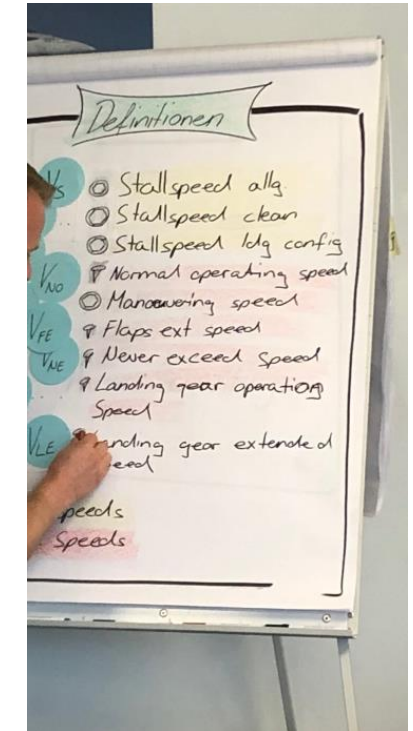 Definitionen
Vs Stallspeed allg.
Stallspeed clean
Stallspeed ldg config
VNO Normal operating speed
Manoeuvering speed
VFE Flaps ext speed
VNE Never exceed Speed
Landing gear operating
Speed
VLE gear extended
Speeds